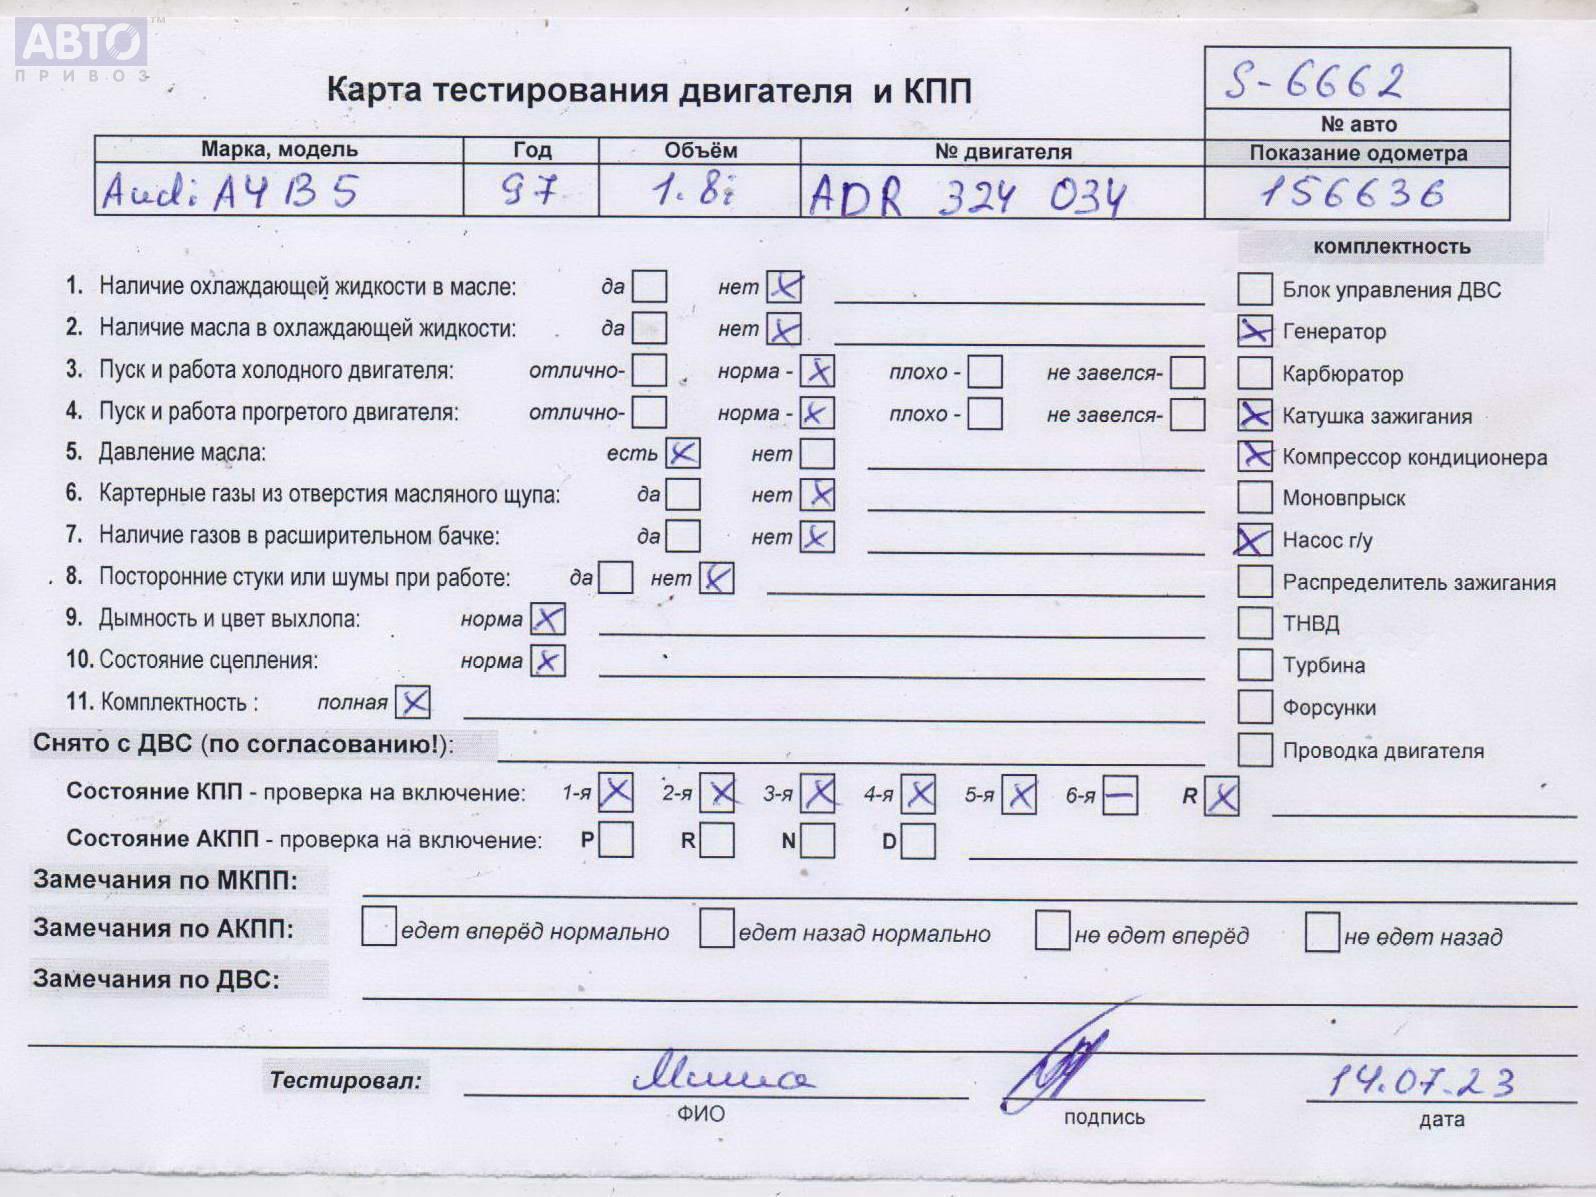 АВТО ™
ПРИВОЗ
Карта тестирования двигателя и КПП
S-6662
№ авто
Марка, модель Год Объём № двигателя Показание одометра
Audi A4 B5 97 1.8i ADR 324 034 156636
комплектность
1. Наличие охлаждающей жидкости в масле: да нет
Блок управления ДВС
2. Наличие масла в охлаждающей жидкости: да нет
Генератор
3. Пуск и работа холодного двигателя: отлично- норма - плохо - не завелся-
Карбюратор
4. Пуск и работа прогретого двигателя: отлично- норма - плохо - не завелся-
Катушка зажигания
5. Давление масла: есть нет
Компрессор кондиционера
6. Картерные газы из отверстия масляного щупа: да нет
Моновпрыск
7. Наличие газов в расширительном бачке: да нет
Насос г/у
8. Посторонние стуки или шумы при работе: да нет
Распределитель зажигания
9. Дымность и цвет выхлопа: норма
ТНВД
10. Состояние сцепления: норма
Турбина
11. Комплектность : полная
Форсунки
Снято с ДВС (по согласованию!):
Проводка двигателя
Состояние КПП - проверка на включение: 1-я 2-я 3-я 4-я 5-я 6-я R
Состояние АКПП - проверка на включение: P R N D
Замечания по МКПП:
Замечания по АКПП: едет вперёд нормально едет назад нормально не едет вперёд не едет назад
Замечания по ДВС:
Тестировал: 14.07.23
ФИО подпись дата